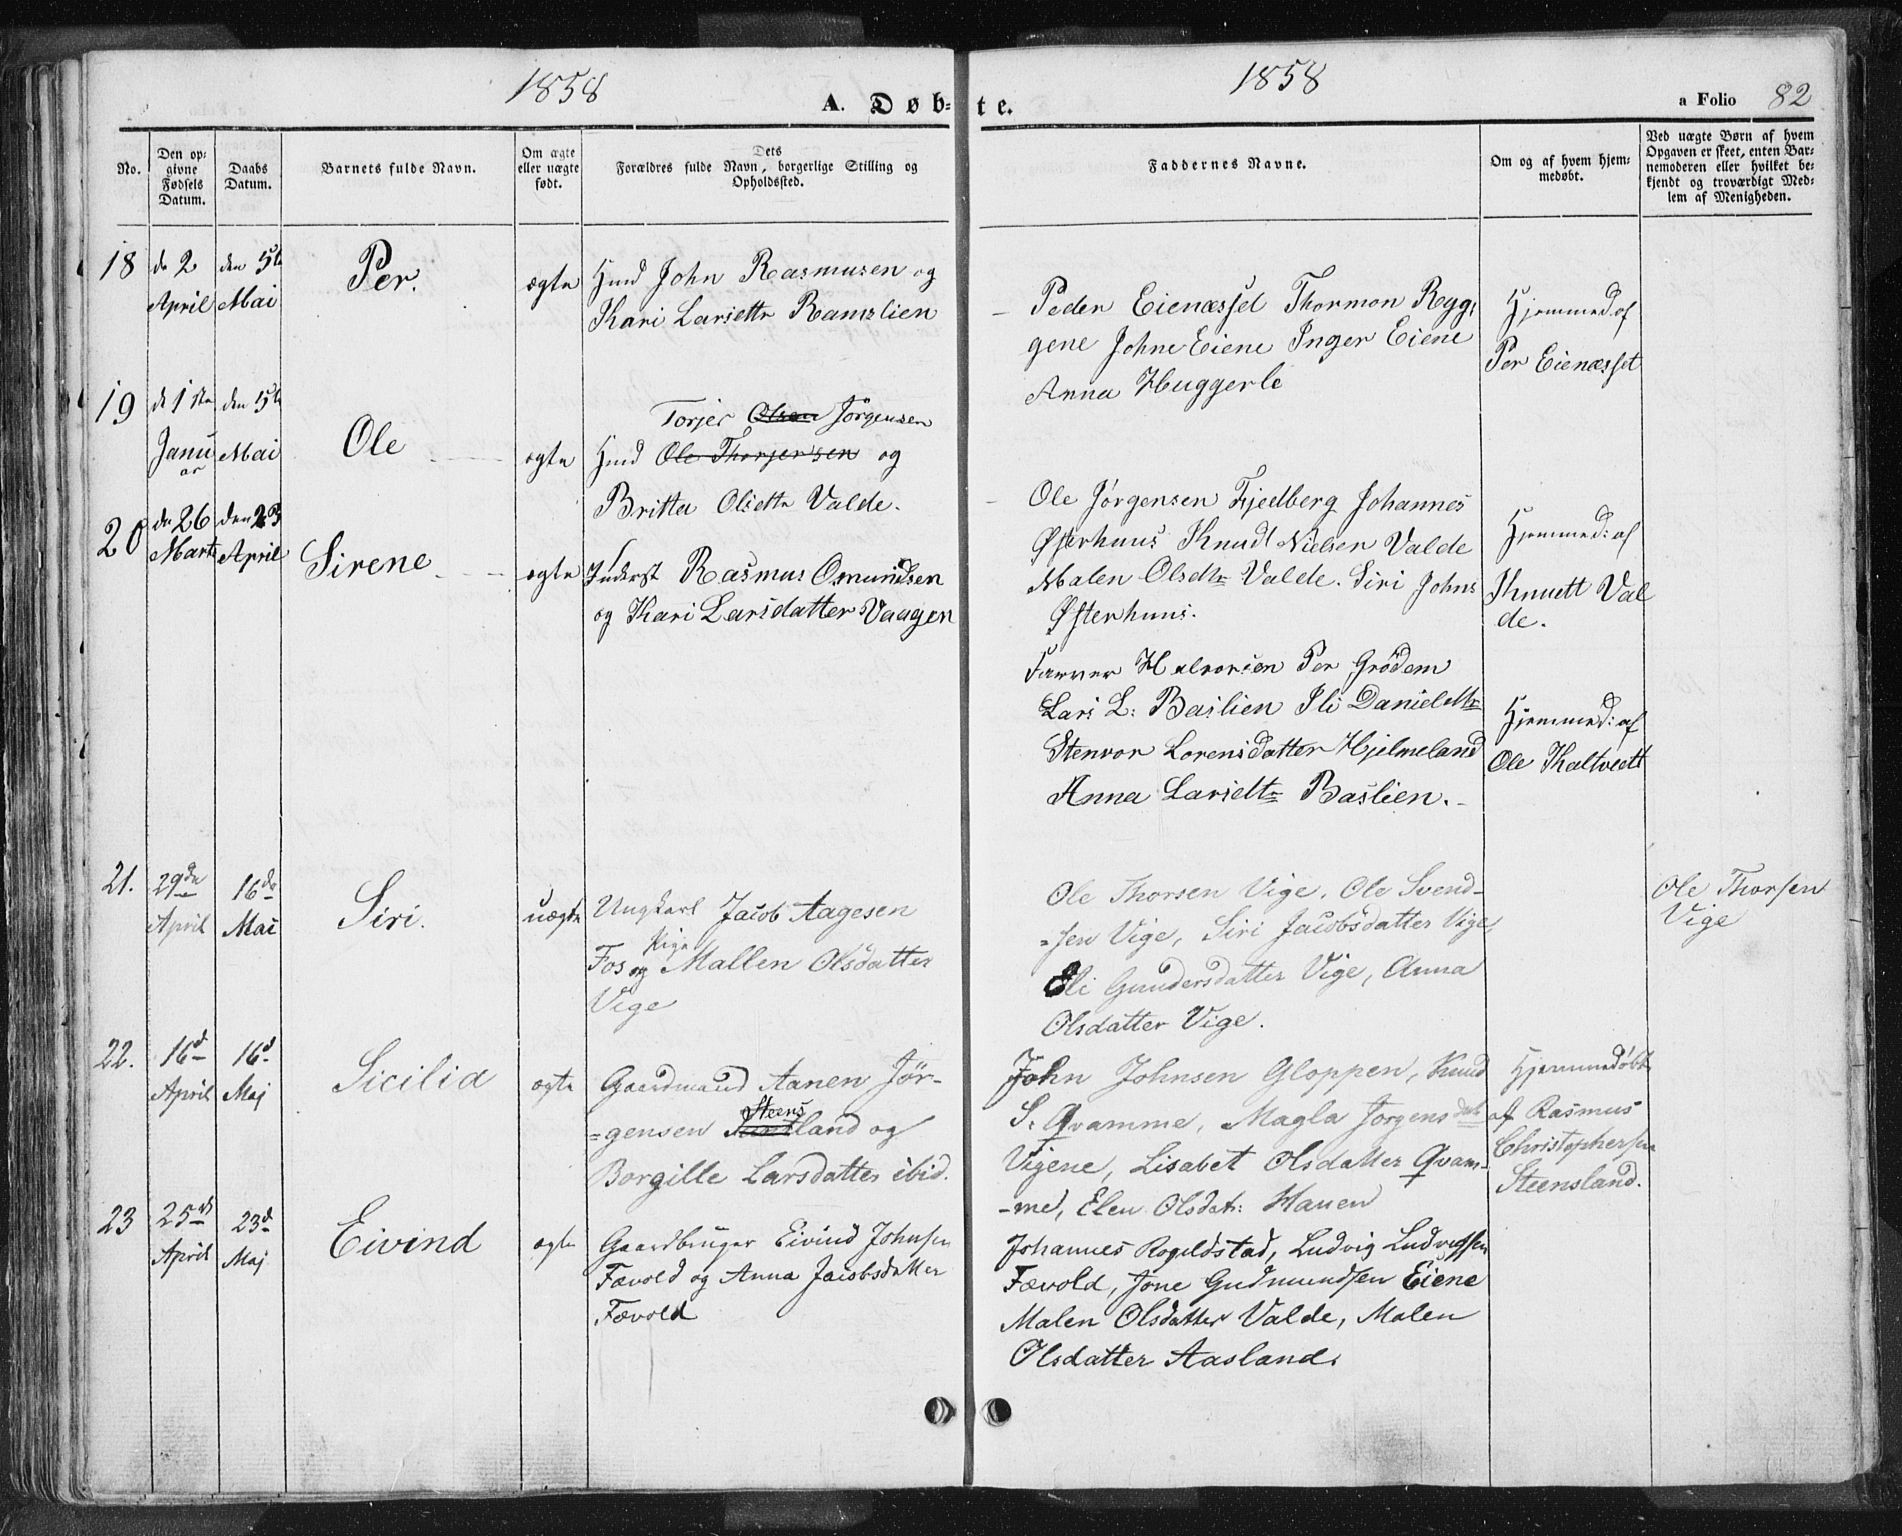 1858
1858
A. Døb-
te.
a Folio 82
No.
Den op-
givne
Fødsels
Datum.
Daabs
Datum.
Barnets fulde Navn.
Om ægte
eller uægte
født.
Dets
Forældres fulde Navn, borgerlige Stilling og
Opholdssted.
Faddernes Navne.
Om og af hvem hjem-
medøbt.
Ved uægte Børn af hvem
Opgaven er skeet, enten Bar-
nemoderen eller hvilket be-
kjendt og troværdigt Med-
lem af Menigheden.
18
de 2
April
den 5te
Mai
Per.
ægte
Hmd John Rasmusen og
Kari Larsettr Ramslien
Peder Eienæsset Thormon Ryg,
gene Johne Eiene Inger Eiene
Anna Huggerle
Hjemmed. af
Per Eienæsset
19
de 1ste
Janu
ar
den 5te
Mai
Ole
ægte
Torjer Olsen Jörgensen
Hmd Ole Thorjersen og
Britta Olsettr Valde.
Ole Jørgensen Fjedberg Johannes
Østerhuus Knud Nielsen Valde
Malen Olsdtr Valde. Siri Johns
Østerhuus.
Hjemmed: af
Knuett Val
de.
20
de 26
Marts
den 23
April
Sirene
ægte
Inderst Rasmus Osmundsen
og Kari Larsdatter Vaagen
Farver Halvorsen Per Grödem
Lars L: Baslien Ili Danieldtr
Stenvor Lorensdatter Hjelmeland
Anna Larsdtr Baslien.
Hjemmed: af
Ole Kaltveett
21.
29de
April
16de
Mai
Siri.
uægte
Ungkarl Jacob Aagesen
Pige
Fos og Mallen Olsdatter
Vige
Ole Thorsen Vige, Ole Svend-
=sen Vige, Siri Jacobsdatter Vige,
Eli Gundersdatter Vige, Anna
Olsdatter Vige.
Ole Thorsen
Vige
22.
16d
April
16d
Maj
Sicilia
ægte
Gaardmand Aanen Jör-
Steens
=gensen land og
Borgille Larsdatter ibid.
John Johnsen Gloppen, Knud
S: Qvamme, Magla Jörgensdat
Vigene, Lisabet Olsdatter Qvam-
-me, Elen Olsdat: Hauen
Hjemmedöbt
af Rasmus
Christophersen
Steensland.
23
25d
April
23d
Maj
Eivind
ægte
Gaardbruger Eivind Johnsen
Fævold og Anna Jacobsdatter
Fævold
Johannes Rogeldstad, Ludvig Ludvigsen
Fævold, Jone Gudmundsen Eiene
Malen Olsdatter Valde, Malen
Olsdatter Aasland.